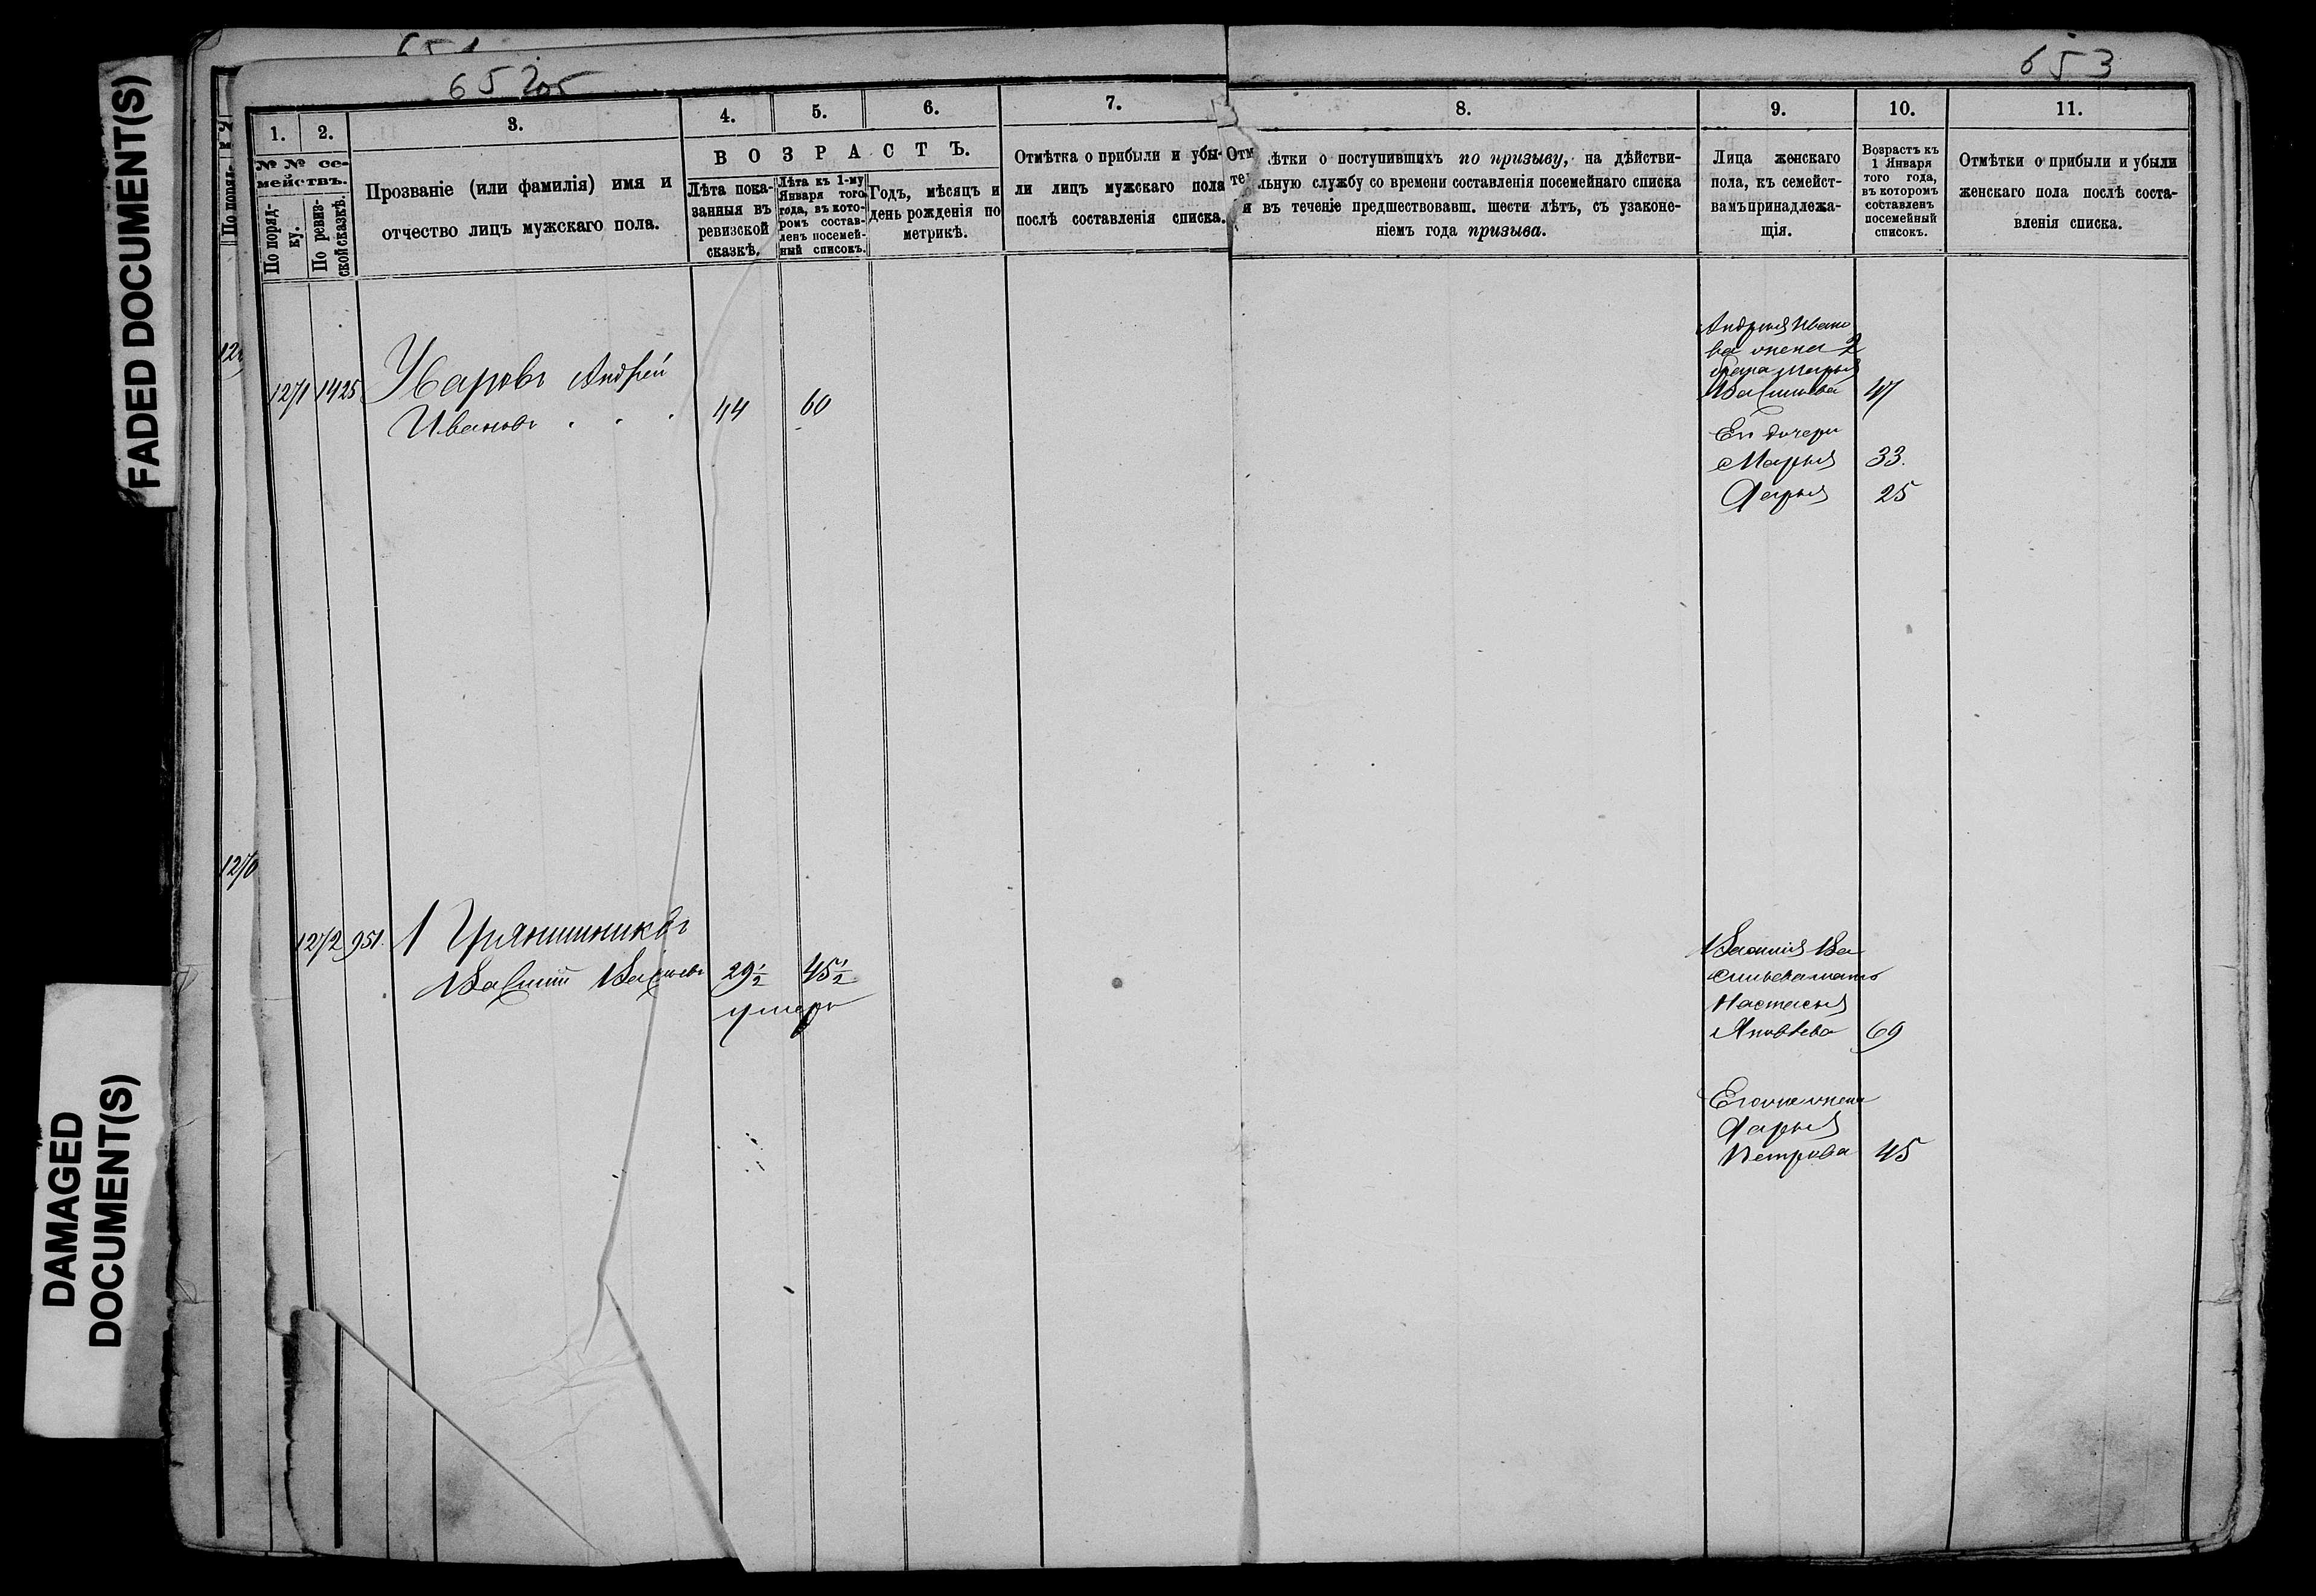 FADED DOCUMENT(S)
DAMAGED
DOCUMENT(S)
653
1.
2.
3.
4.
5.
6.
7.
8.
9.
10.
11.
№ № се-
мействъ.
По поряд-
ку.
По ревиз-
ской сказкѣ.
Прозваніе (или фамилія) имя и
отчество лицъ мужскаго пола.
ВОЗРАСТЪ.
Лѣта пока-
занныя въ
ревизской
сказкѣ.
Лѣта къ 1-му
Января того
года, въ кото-
ромъ состав-
ленъ посемей-
ный списокъ.
Годъ, мѣсяцъ и
день рожденія по
метрикѣ.
Отмѣтка о прибыли и убы-
ли лицъ мужскаго пола
послѣ составленія списка.
ѣтки о поступившихъ по призыву, на дѣйстви-
льную службу со времени составленія посемейнаго списка
и въ теченіе предшествовавш. шести лѣтъ, съ узаконе-
ніемъ года призыва.
Лица женскаго
пола, къ семейст-
вамъ принадлежа-
щія.
Возрастъ къ
1 Января
того года,
въ которомъ
составленъ
посемейный
списокъ.
Отмѣтки о прибыли и убыли
женскаго пола послѣ соста-
вленія списка.
По поряд-
1271 1425 Уваровъ Андрей
Ивановъ . . . 44 60
Андрея Ивано
ва жена 2
брака Марья
Васильева 47
Ея дочери
Марья 33.
Дарья 25
1270
1272 951. 1 Грянишниковъ
Василій Васильевъ 29½ 45½
умеръ
Василія Ва
сильева мать
Настасья
Яковлева 69
Его же жена
Дарья
Петрова 45